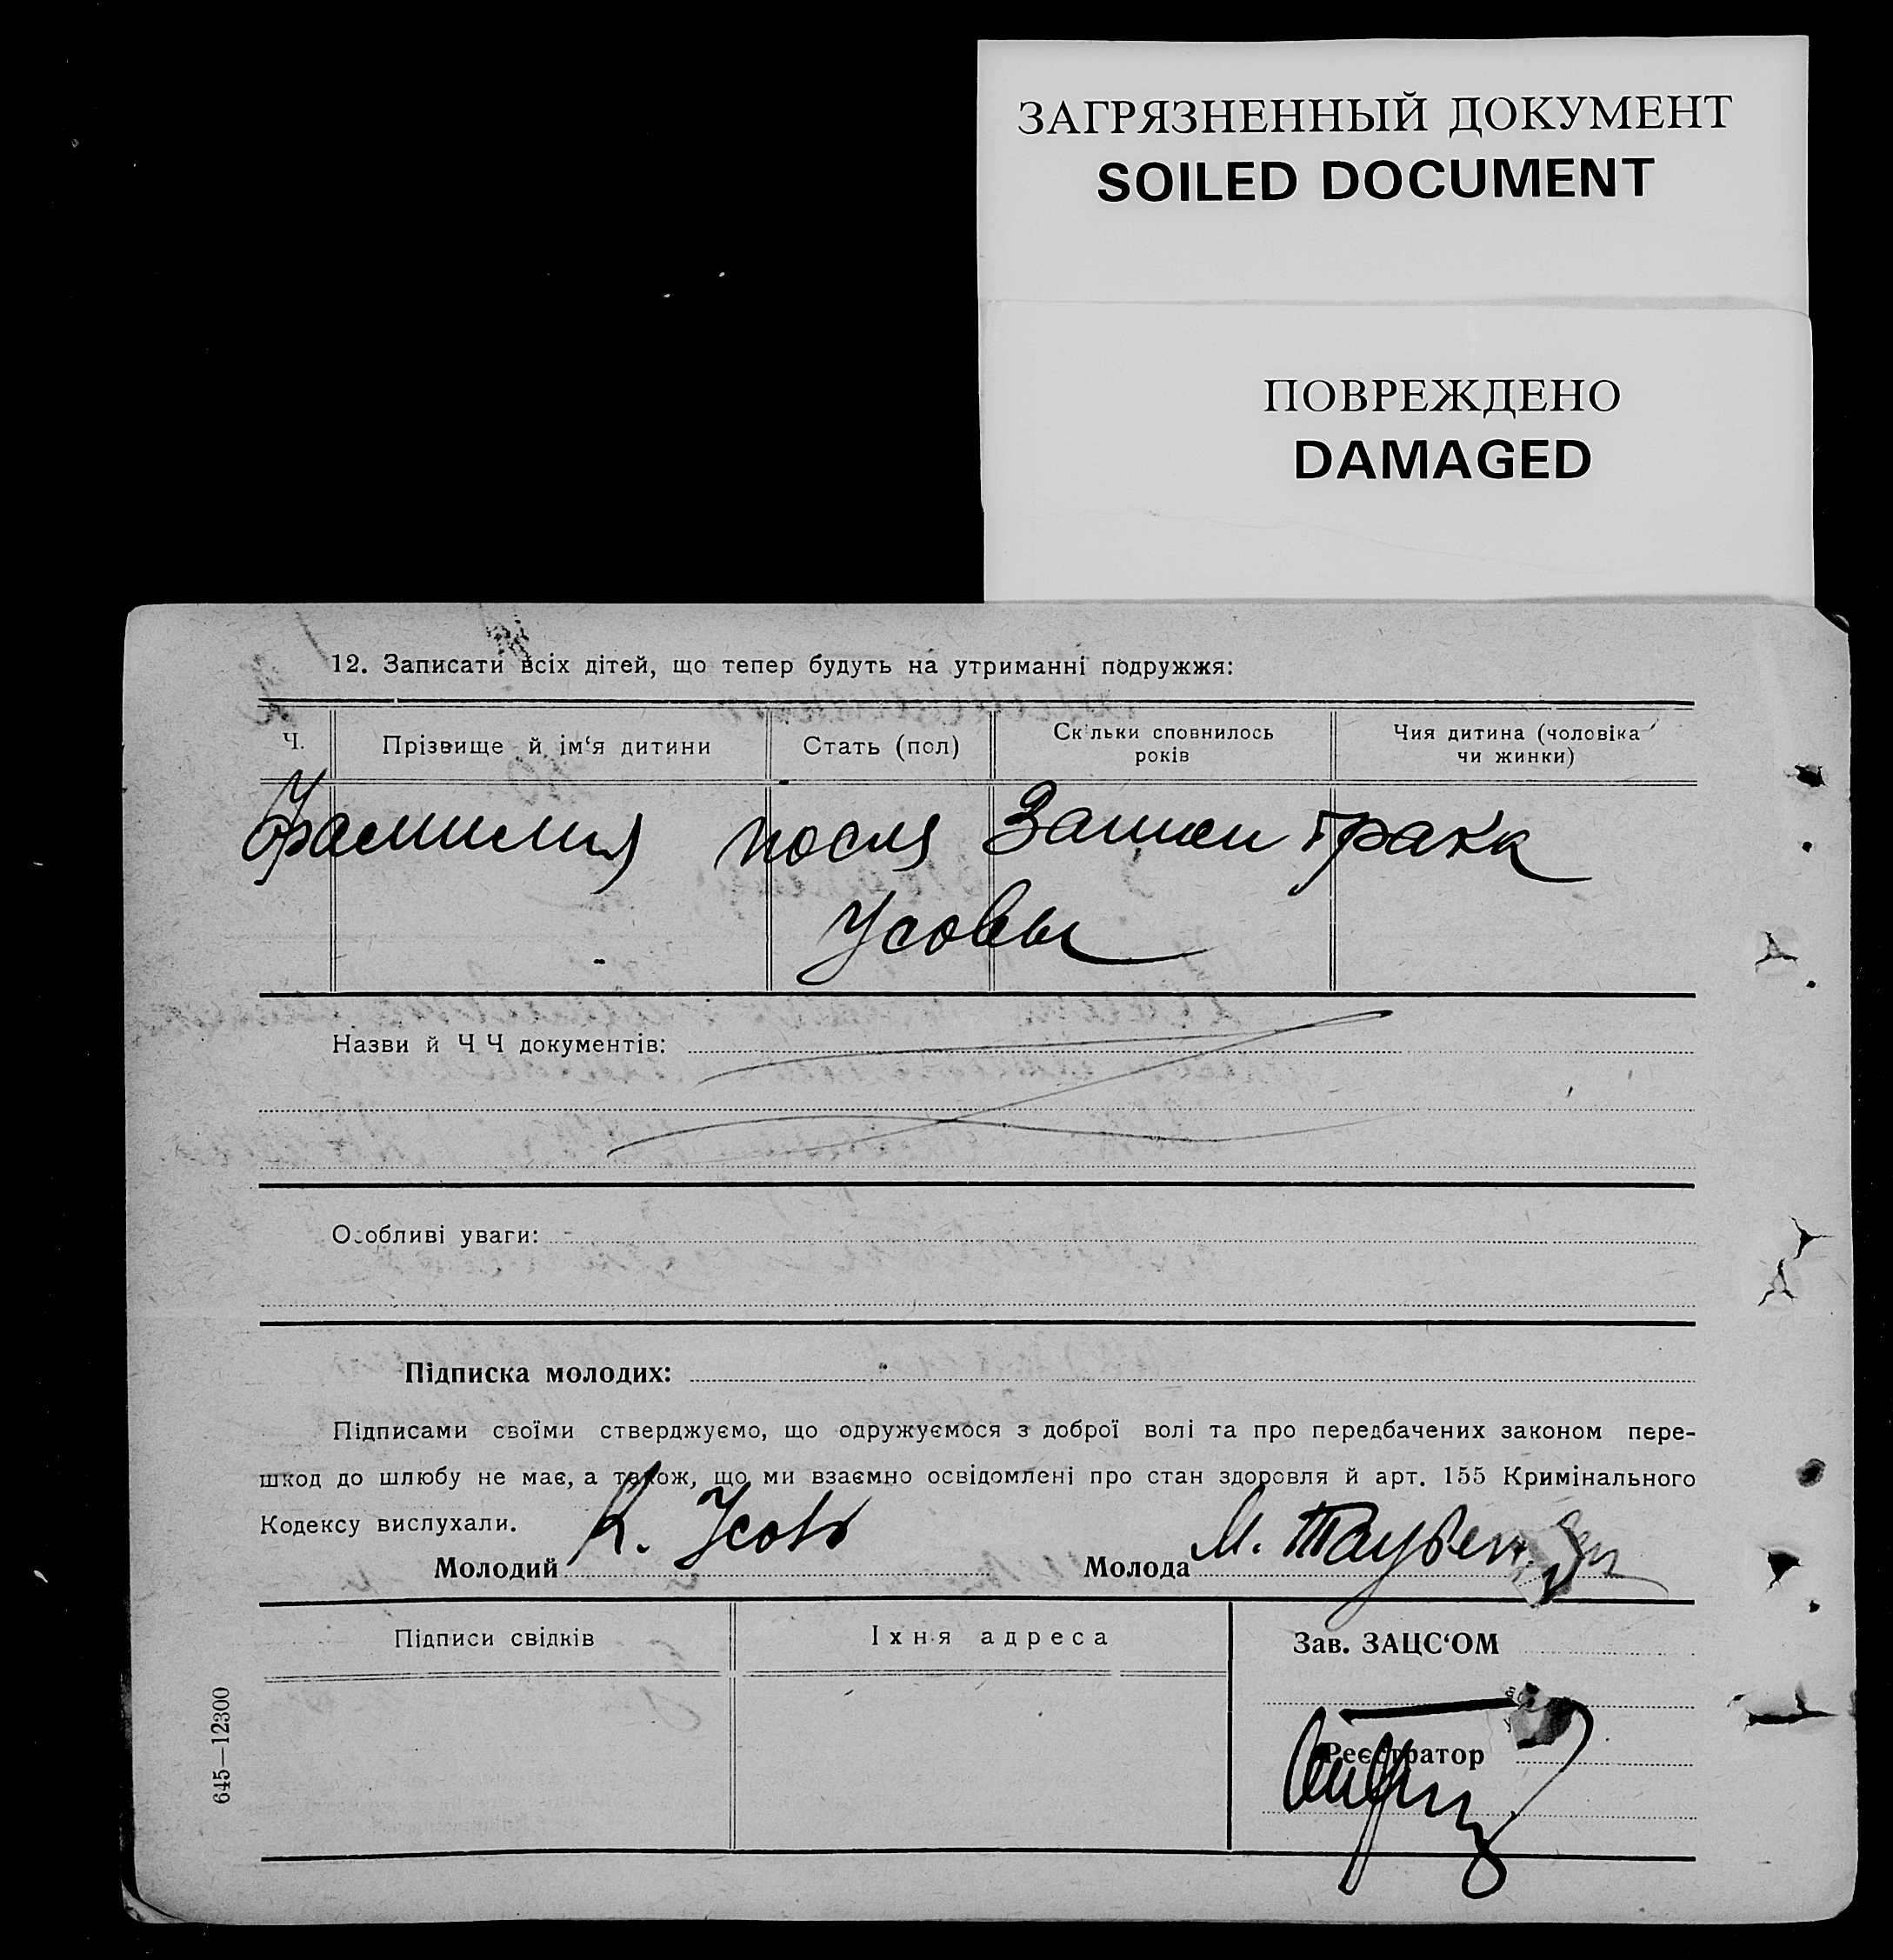 ЗАГРЯЗНЕННЫЙ ДОКУМЕНТ
SOILED DOCUMENT
ПОВРЕЖДЕНО
DAMAGED
12. Записати всіх дітей, що тепер будуть на утриманні подружжя:
Ч.
Прізвище й ім‘я дитини
Стать (пол)
Скільки сповнилось
років
Чия дитина (чоловіка
чи жинки)
Фамилия после Записи брака
Усовы
Назви й ЧЧ документів:
Особливі уваги:
Підписка молодих:
Підписами своїми стверджуємо, що одружуємося з доброї волі та про передбачених законом пере-
шкод до шлюбу не має, а також, що ми взаємно освідомлені про стан здоровля й арт. 155 Кримінального
Кодексу вислухали.
Молодий К. Усов
Молода М.
Підписи свідків
Їхня адреса
Зав. ЗАЦС‘ОМ
Реєстратор
645—12300